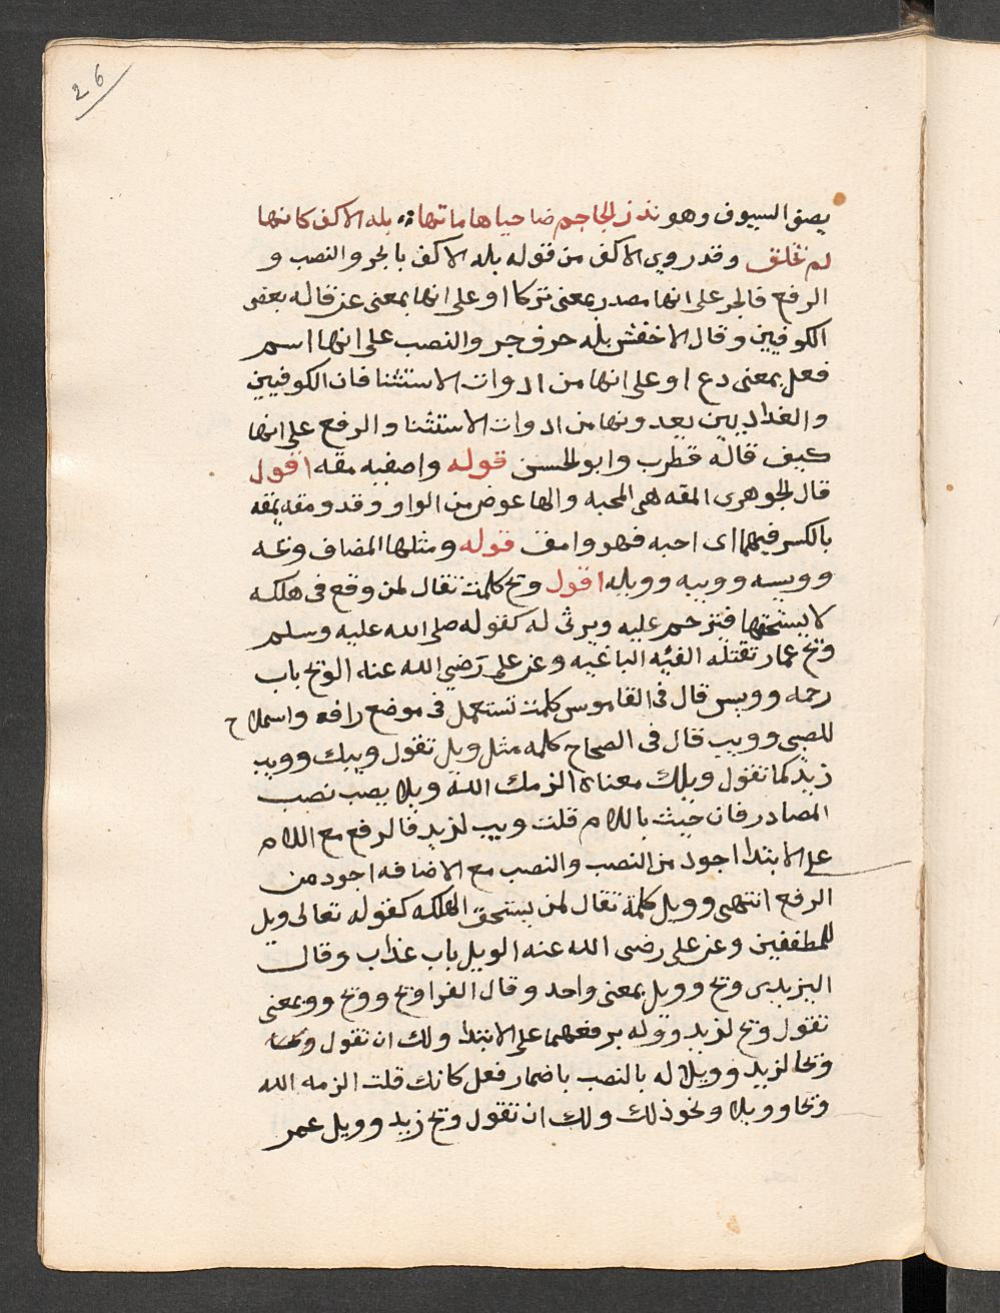 26
يصف السيوف وهو تذر الجاجم ضاحيا هاماتها ؞ بله الاكف كانها
لم تخلق وقد روي الاكف من قوله بله الاكف بالجر والنصب و
الرفع فالجر على انها مصدر بمعنى تركا او على انها بمعنى عن قاله بعض
الكوفيين وقال الاخفش بله حرف جر والنصب على انها اسم
فعل بمعنى دع او على انها من ادوات الاستثنا فان الكوفيين
والغداديين يعدونها من ادوات الاستثنا والرفع على انها
كيف قاله قطرب وابو الحسن قوله واصفيه مقه اقول
قال الجوهرى المقه هى المحبه والها عوض من الواو وقد ومقه يمقه
بالكسر فيهما اى احبه فهو وامق قوله ومثلها المضاف ويحه
وويسه وويبه وويله اقول ويح كلمت تقال لمن وقع فى هلكه
لا يستحقها فيترحم عليه ويرثى له كقوله صلى الله عليه وسلم
ويح عمار تقتله الفئه الباغيه وعن على رضي الله عنه الويح باب
رحمه وويس قال فى القاموس كلمت تستعمل فى موضع رافه واستملاح
للصبى وويب قال فى الصحاح كلمه مثل ويل تقول ويبك وويب
زيد كما تقول ويلك معناه الزمك الله ويلا يصب نصب
المصادر فان جيت باللام قلت ويب لزيد فالرفع مع اللام
على الابتدا اجود من النصب والنصب مع الاضافه اجود من
الرفع انتهى وويل كلمة تقال لمن يستحق الهلكه كقوله تعالى ويل
للمطففين وعن على رضى الله عنه الويل باب عذاب وقال
اليزيدى ويح وويل بمعنى واحد وقال الفرا ويح وويح وبمعنى
تقول ويح لزيد وويله برفعهما على الابتدا ولك ان تقول ويحا
ويحا لزيد وويلا له بالنصب باضمار فعل كانك قلت الزمه الله
ويحا وويلا ونحو ذلك ولك ان تقول ويح زيد وويل عمر